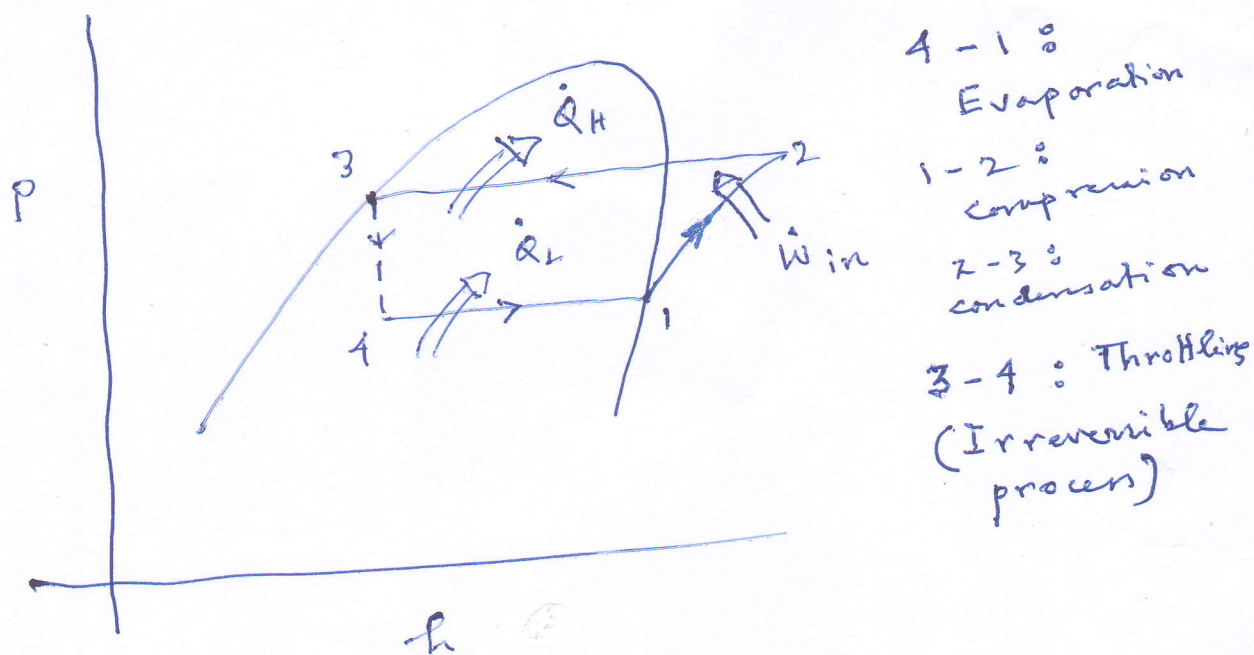 P
3
Q̇H
2
Q̇L
Ẇin
4
1
h
4-1:
Evaporation
1-2:
compression
2-3:
condensation
3-4: Throttling
(Irreversible
process)